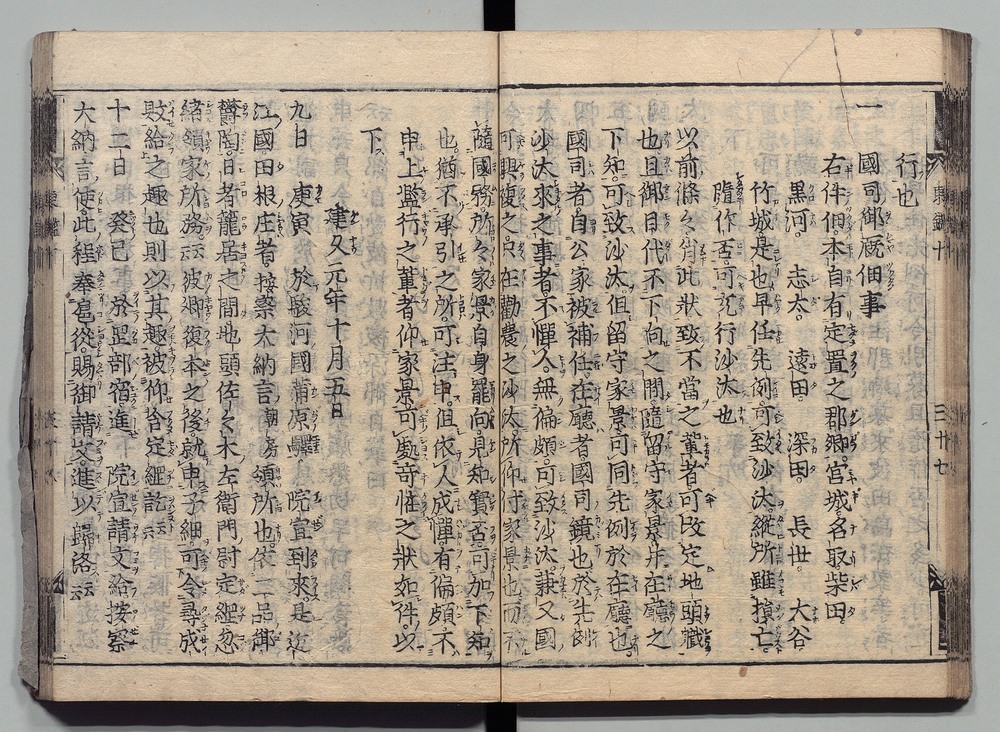 行也
一 國司御厩佃事
右件佃本自有定置之郡郷宮城名取柴田
黒河 志太 遠田 深田 長世 大谷
竹城是也早任先例可致沙汰縱所雖損亡
隨作否可行沙汰也
以前條々背此狀致不當之輩者可改定地頭職
也且御目代不下向之間隨留守家景并在廳之
下知可致沙汰但留守家景可同先例於在廳也
國司者自公家被補任在廳者國司鏡也於先例
沙汰來之事者不憚人無偏頗可致沙汰兼又國
可興復之只在勸農之沙汰所仰付家景也而不
隨國務於々家景自身罷向見知實否可加下知
也猶不承引之所可注申但依人成憚有偏頗不
申上濫行之輩者仰家景可處奇恠之狀如件以
下
建久元年十月五日
九日 庚寅 於駿河國蒲原驛 院宣到來是近
江國田根庄者按察大納言朝房領所也依二品御
欝陶日者籠居之間地頭佐々木左衛門尉定綱忽
緒領家所務云云彼卿復本之後就申子細可令尋成
敗給之趣也則以其趣被仰含定綱訖云云
十二日 癸巳 於罡部宿進 院宣請文給按察
大納言使此程奉扈從賜御請文進以歸洛云云
東鑑十
三十七